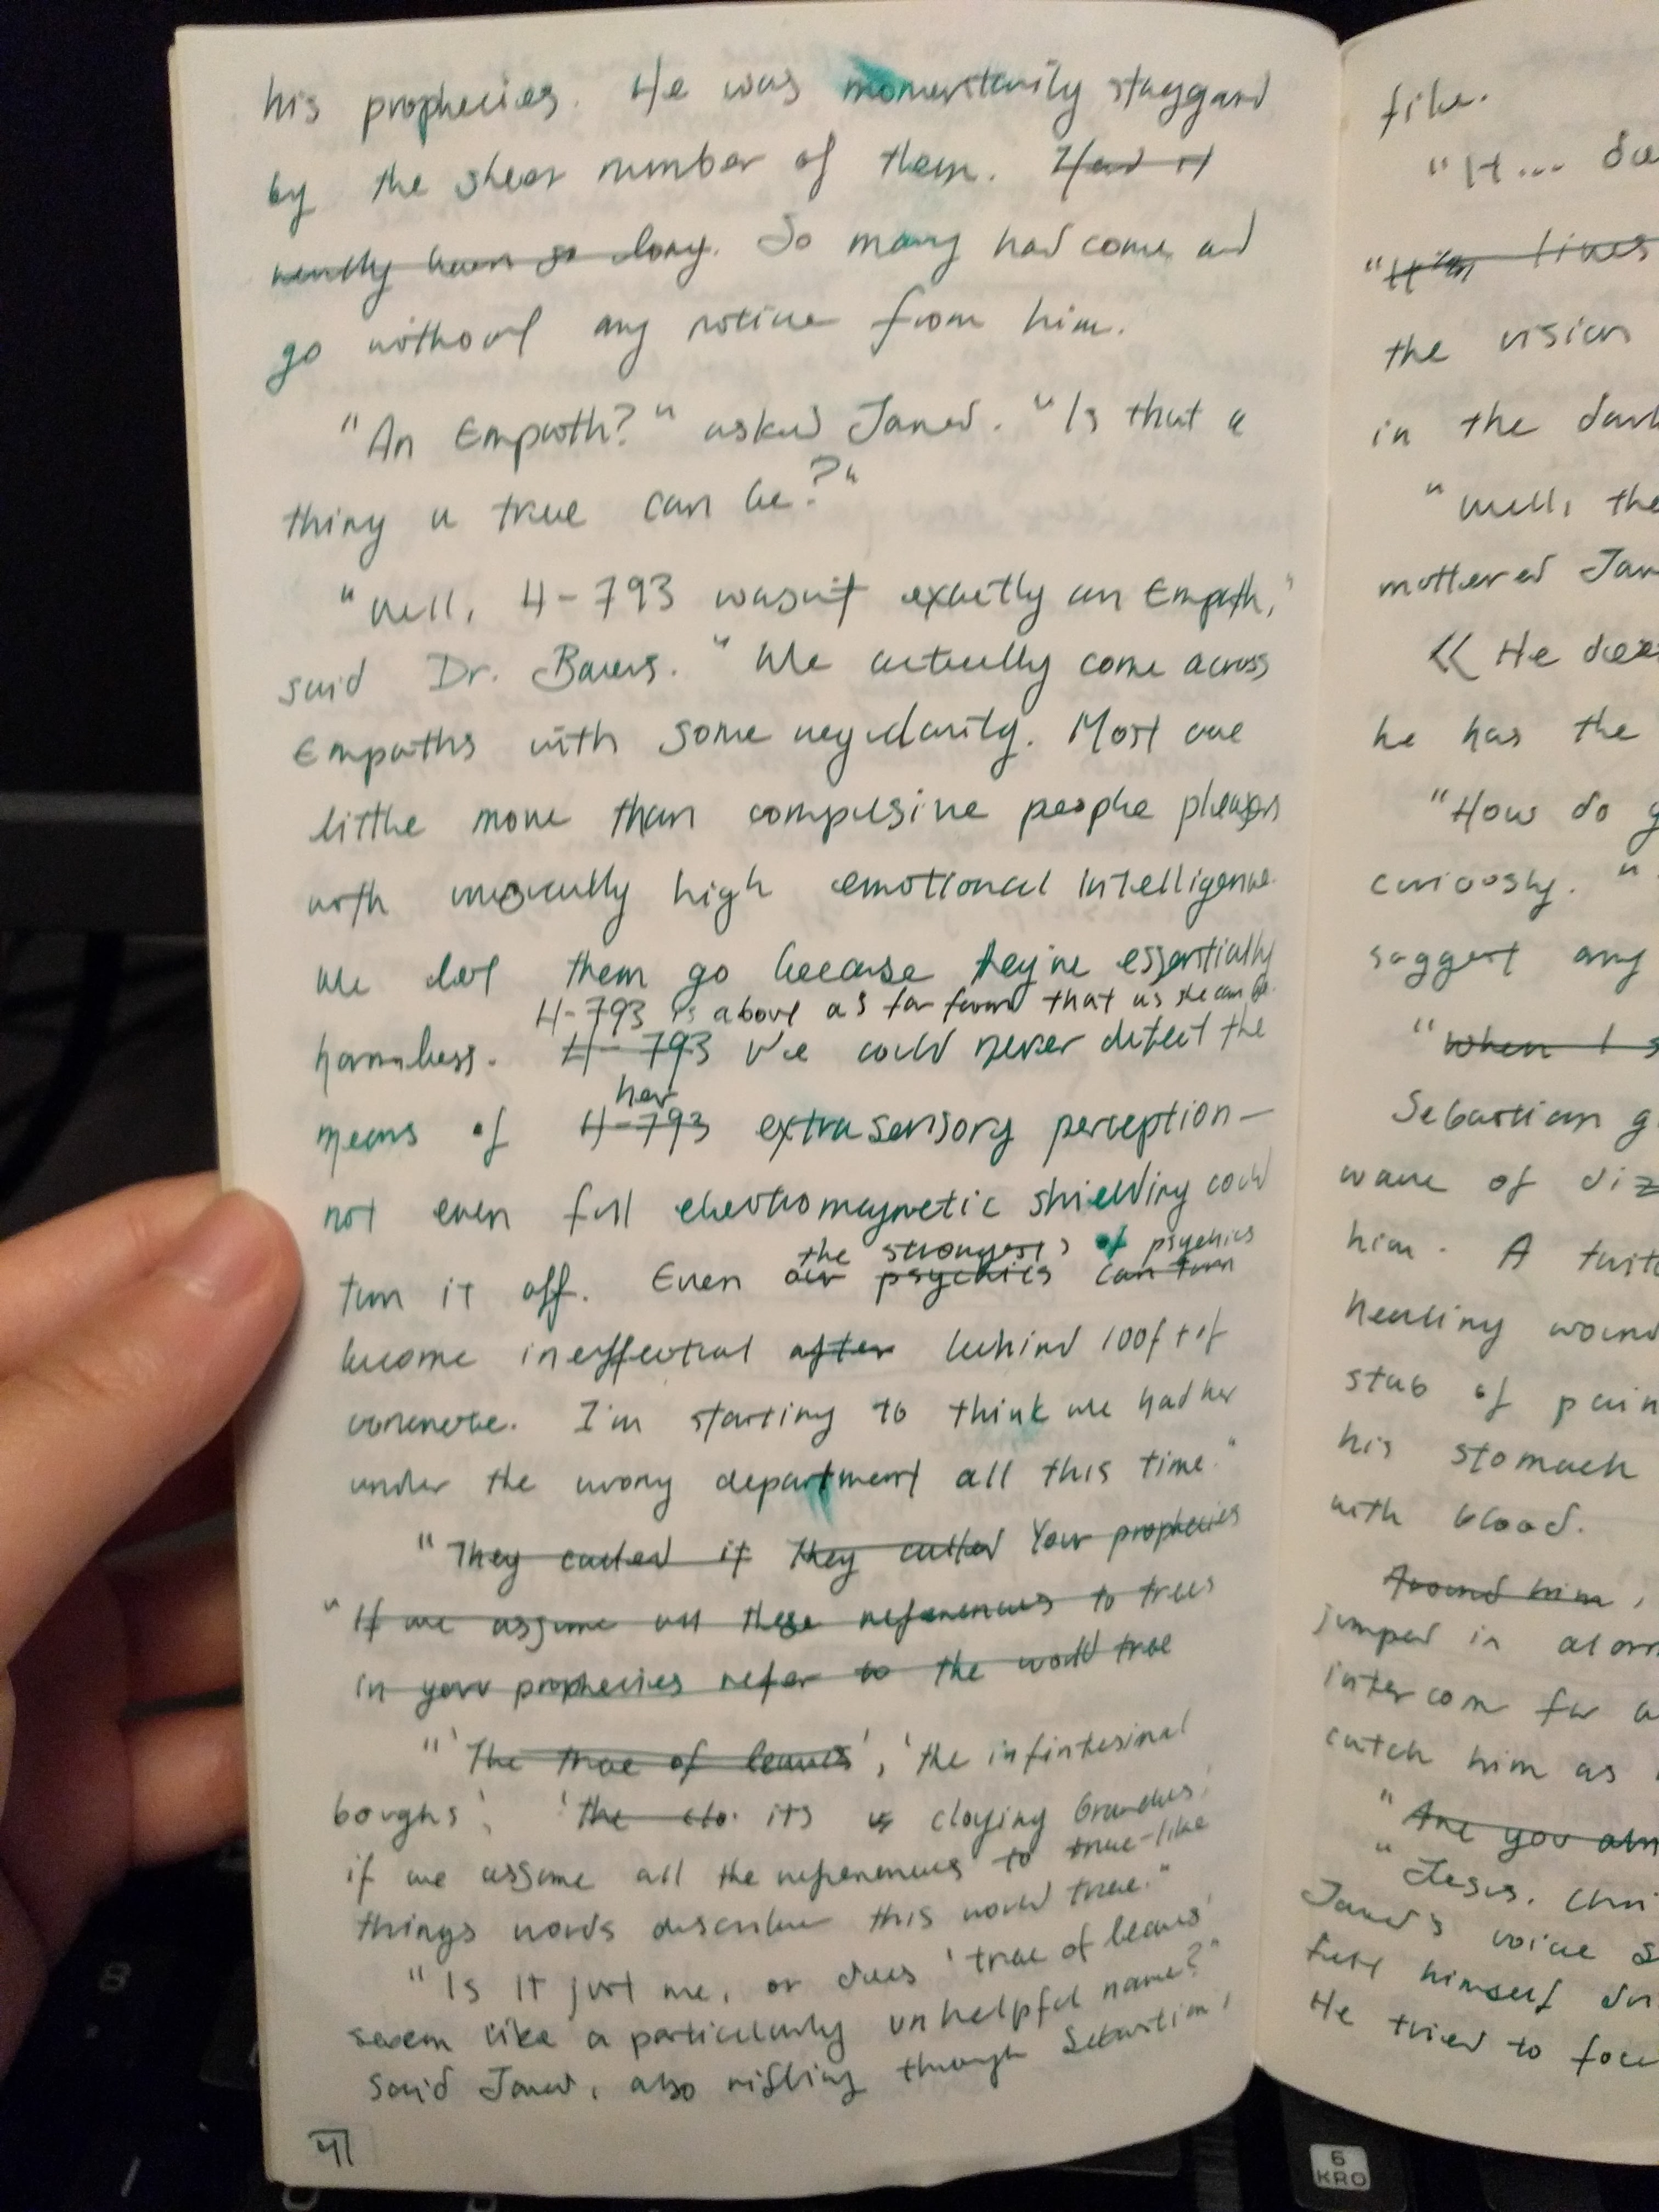 his prophecies. He was momentarily staggard
by the shear number of them. Had it
really been so long. So many had come and
go without any notice from him.
"An Empath?" asked Jared. "Is that a
thing a tree can be?"
"Well, 4-793 wasn't exactly an Empath,"
said Dr. Bowers. "We actually come across
Empaths with some regularity. Most are
little more than compulsive people pleasers
with unusually high emotional intelligence.
We let them go because they're essentially
4-793 is above as far from that as she can be.
harmless. 4-793 We could never detect the
her
means of 4-793 extrasensory perception—
not even full electromagnetic shielding could
the strongest of psychics
turn it off. Even our psychics can turn
become ineffectual after behind 100ft of
concrete. I'm starting to think we had her
under the wrong department all this time."
"They called it they called Your prophecies
"If we assume all these references to trees
in your prophecies refer to the world tree
"'The tree of leaves', 'the infintesimal
boughs', 'the clo. its cloying branches.'
if we assume all the references to tree-like
things words describe this world tree."
"Is it just me, or does 'tree of leaves'
seem like a particularly unhelpful name?"
said Jared, also rifling through Sebastian's
41
file.
"It... doe
"It's lives
the vision
in the dark
"Well, the
muttered Jar
« He does
he has the
"How do y
curiously. "
suggest any
"When I s
Sebastian g
wave of diz
him. A twit
healing wound
stab of pain
his stomach
with blood.
Around him,
jumped in alarm
intercom for a
catch him as
"Are you alr
"Jesus. Chri
Jared's voice s
felt himself dr
He tried to focu
8
6
KRO